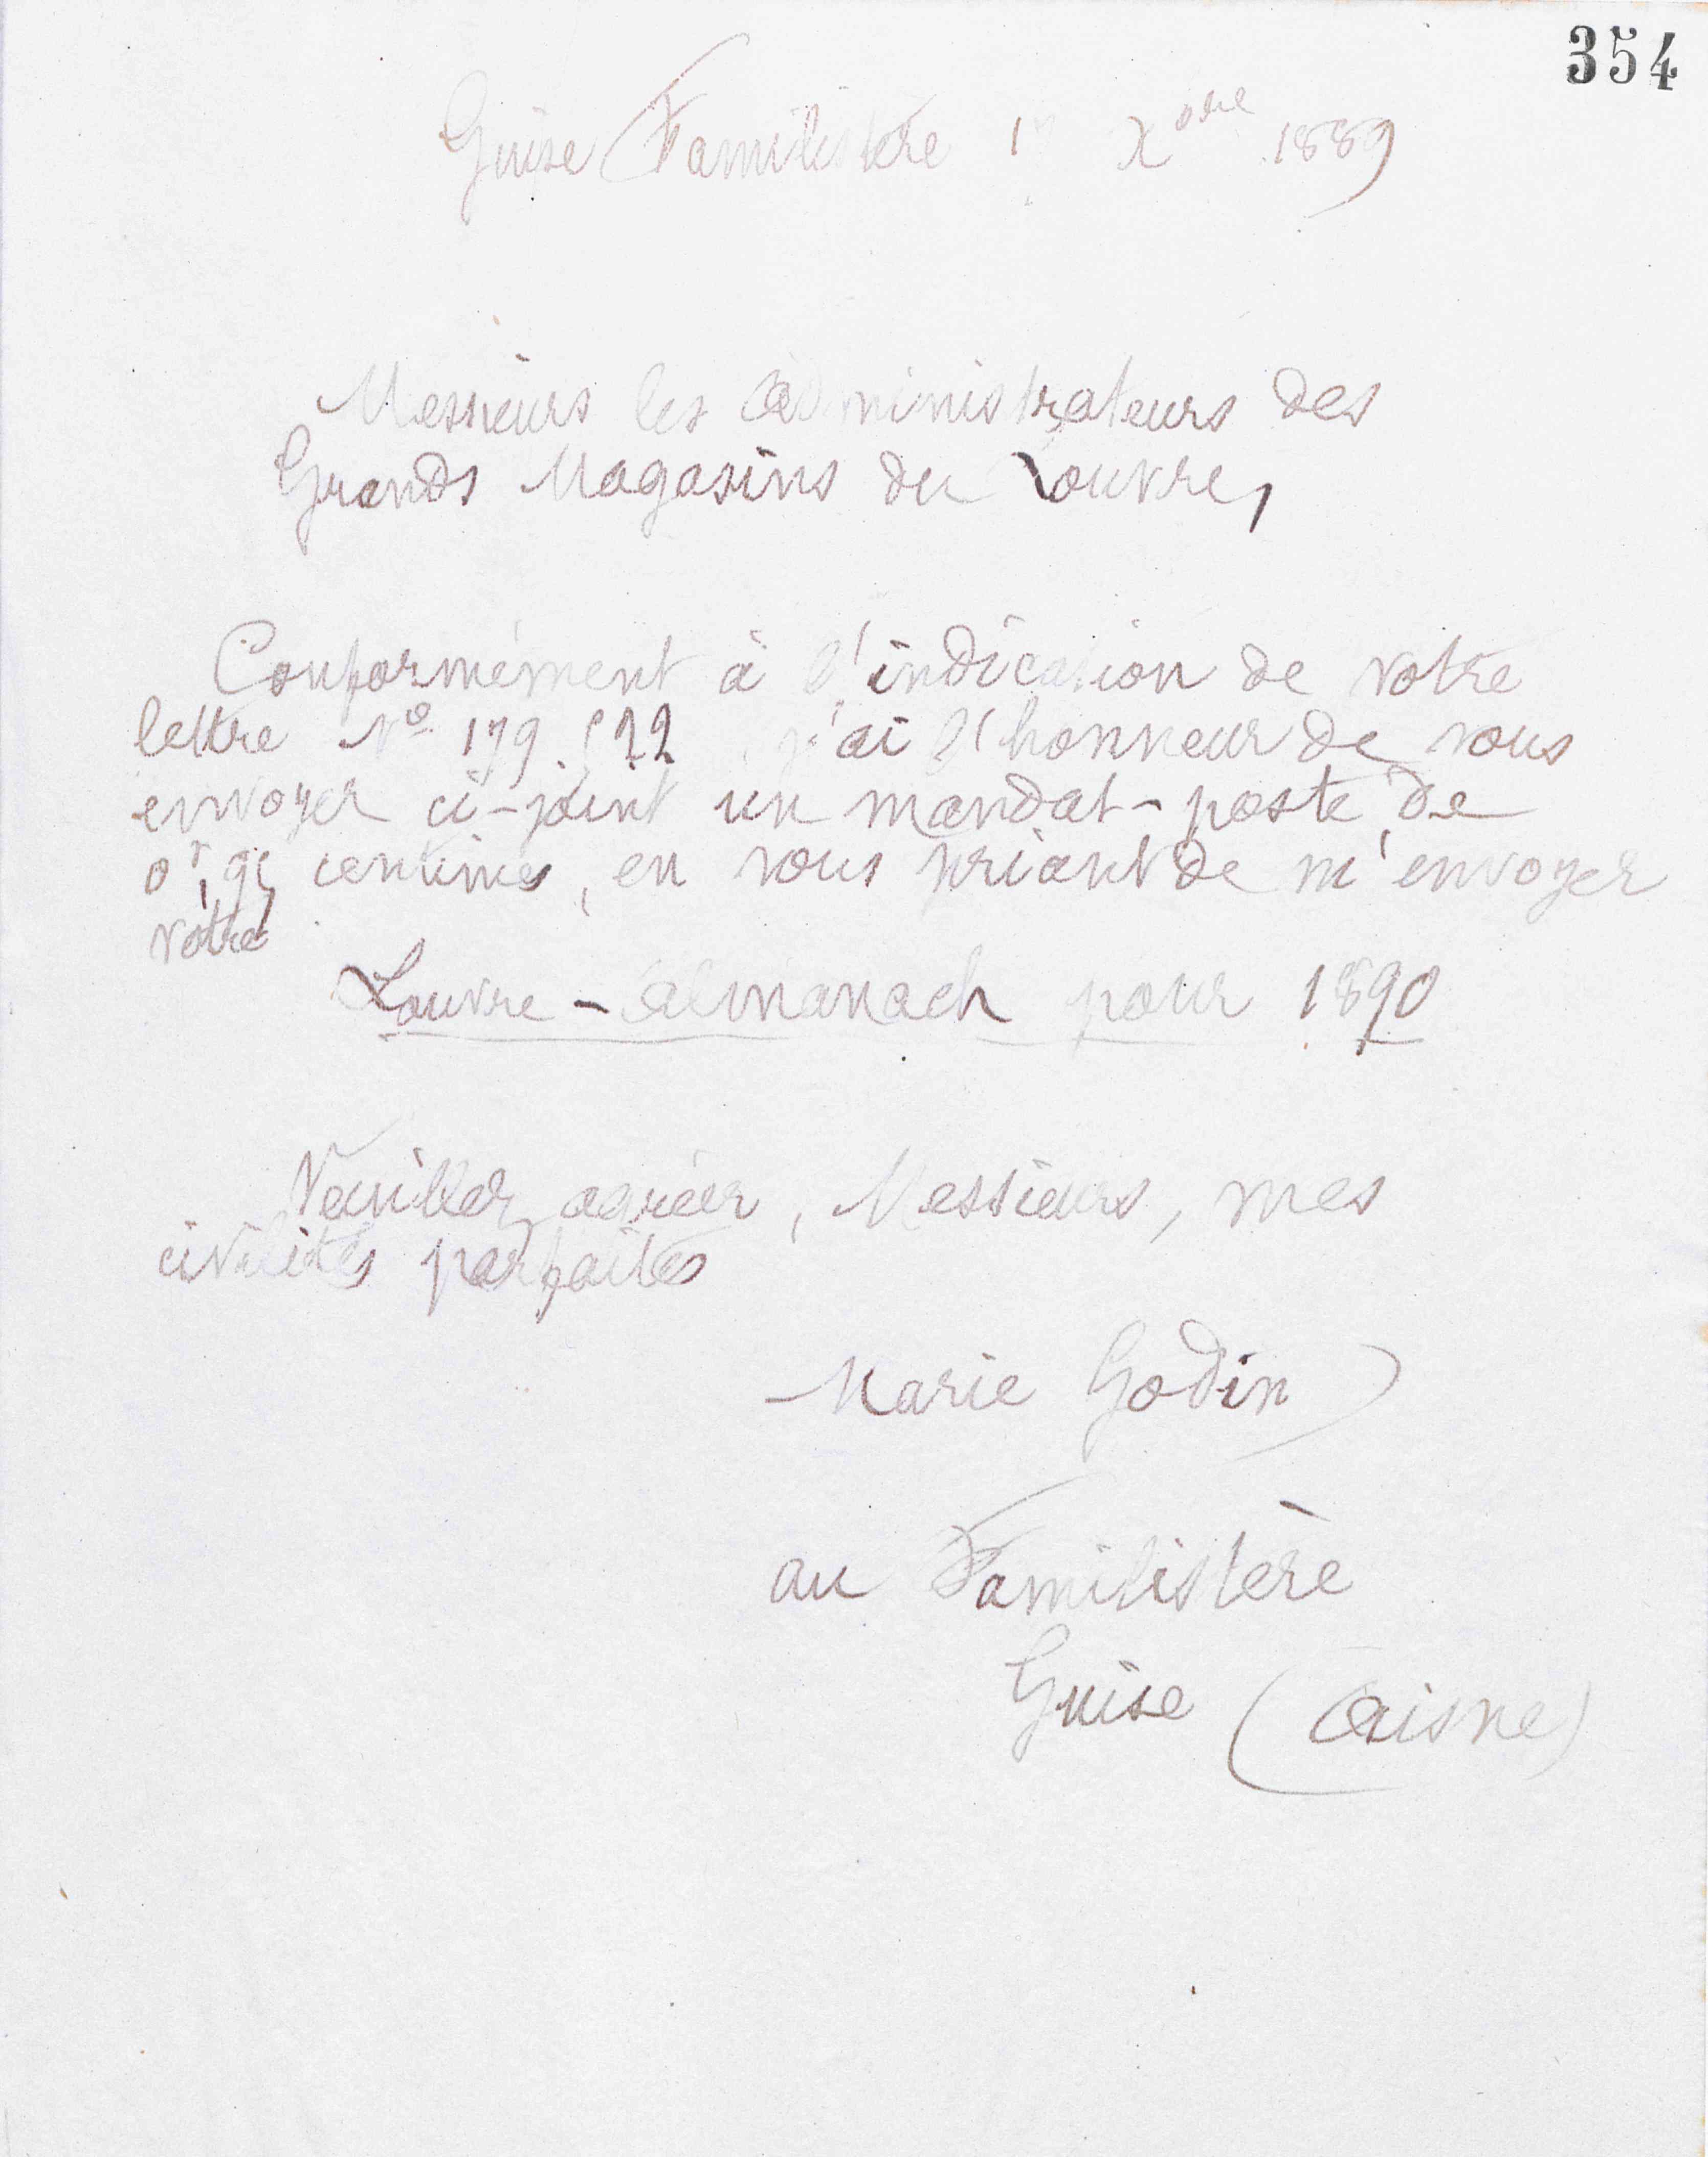 354
Guise Familistère 1 Xbre 1889
Messieurs les administrateurs des
Grands Magasins du Louvre,
Conformément à l'indication de votre
lettre No 179.522 j'ai l'honneur de vous
envoyer ci-joint un mandat-poste de
0f,95 centimes, en vous priant de m'envoyer
votre
Louvre - almanach pour 1890
Veuillez agréer, Messieurs, mes
civilités parfaites
Marie Godin
au Familistère
Guise (Aisne)